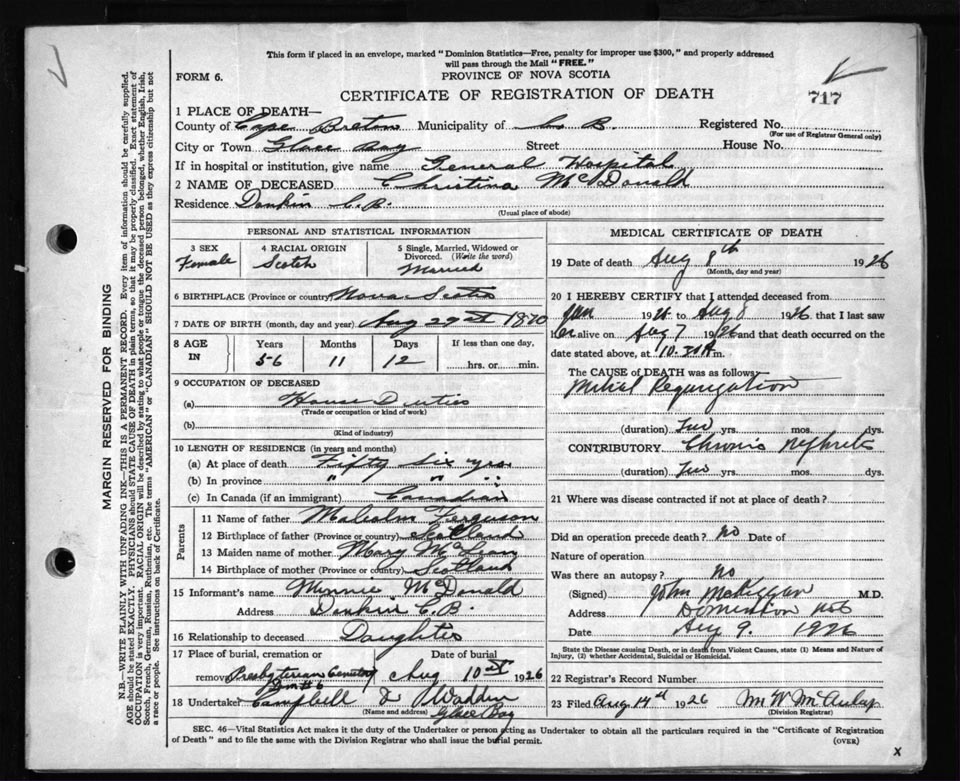 This form if placed in an envelope, marked "Dominion Statistics—Free, penalty for improper use $300," and properly addressed
will pass through the Mail "FREE."
FORM 6.
PROVINCE OF NOVA SCOTIA
CERTIFICATE OF REGISTRATION OF DEATH
717
1 PLACE OF DEATH—
County of Cape Breton Municipality of C. B. Registered No.
(For use of Registrar General only)
City or Town Glace Bay Street House No.
If in hospital or institution, give name General Hospital
2 NAME OF DECEASED Christina McDonald
Residence Donkin C.B.
(Usual place of abode)
PERSONAL AND STATISTICAL INFORMATION
3 SEX
Female
4 RACIAL ORIGIN
Scotch
5 Single, Married, Widowed or
Divorced. (Write the word)
Married
6 BIRTHPLACE (Province or country) Nova Scotia
7 DATE OF BIRTH (month, day and year) Aug 27 1870
8 AGE
IN
Years Months Days If less than one day,
56 11 12 hrs. or min.
9 OCCUPATION OF DECEASED
(a) House Duties
(Trade or occupation or kind of work)
(b)
(Kind of industry)
10 LENGTH OF RESIDENCE (in years and months)
(a) At place of death Fifty Six yrs
(b) In province " " "
(c) In Canada (if an immigrant) Canadian
Parents
11 Name of father Malcolm Ferguson
12 Birthplace of father (Province or country) Scotland
13 Maiden name of mother Mary McLean
14 Birthplace of mother (Province or country) Scotland
15 Informant's name Minnie McDonald
Address Donkin C.B.
16 Relationship to deceased Daughter
17 Place of burial, cremation or Date of burial
removal Presbyterian Cemetery Aug 10 1926
18 Undertaker Campbell & Wadden
(Name and address) Glace Bay
MEDICAL CERTIFICATE OF DEATH
19 Date of death Aug 8th 1926
(Month, day and year)
20 I HEREBY CERTIFY that I attended deceased from
Jan 192 to Aug 8 1926 that I last saw
her alive on Aug 7 1926 and that death occurred on the
date stated above, at 10.30 A m.
The CAUSE of DEATH was as follows:
Mitral Regurgitation
(duration) Two yrs. mos. dys.
CONTRIBUTORY Chronic Nephritis
(duration) Two yrs. mos. dys.
21 Where was disease contracted if not at place of death?
Did an operation precede death? No Date of
Nature of operation
Was there an autopsy? No
(Signed) John McKiggan M.D.
Address Dominion No 6
Date Aug 9. 1926
State the Disease causing Death, or in death from Violent Causes, state (1) Means and Nature of
Injury, (2) whether Accidental, Suicidal or Homicidal.
22 Registrar's Record Number
23 Filed Aug 1926
(Division Registrar)
SEC. 46—Vital Statistics Act makes it the duty of the Undertaker or person acting as Undertaker to obtain all the particulars required in the "Certificate of Registration
of Death" and to file the same with the Division Registrar who shall issue the burial permit.
(OVER)
X
MARGIN RESERVED FOR BINDING
N.B.—WRITE PLAINLY WITH UNFADING INK—THIS IS A PERMANENT RECORD. Every item of information should be carefully supplied.
AGE should be stated EXACTLY. PHYSICIANS should STATE CAUSE OF DEATH in plain terms, so that it may be properly classified. Exact statement of
OCCUPATION is very important. RACIAL ORIGIN will be described by stating to what people or tongue the deceased person belonged, whether English, Irish,
Scotch, French, German, Russian, Ruthenian, etc. The terms "AMERICAN" or "CANADIAN" SHOULD NOT BE USED as they express citizenship but not
a race or people. See instructions on back of Certificate.